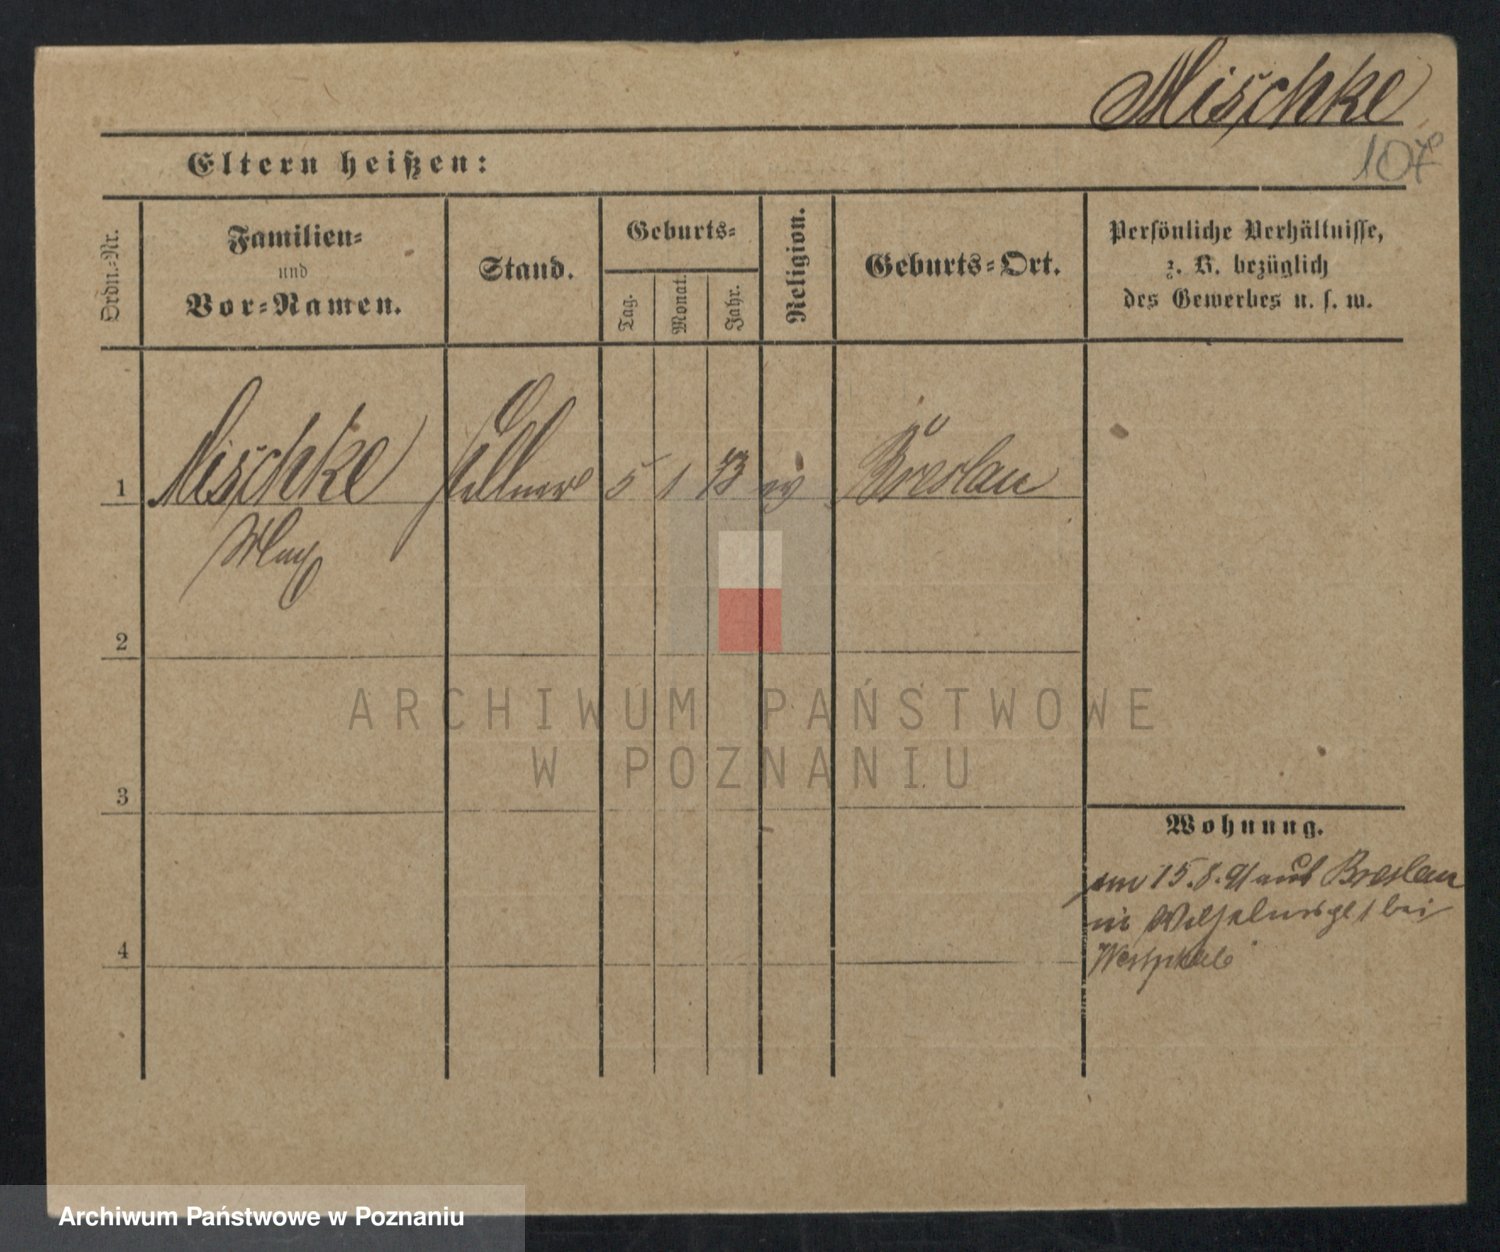 Mischke
107
Eltern heißen:
Ordn.-Nr.
Familien-
und
Vor-Namen.
Stand.
Geburts-
Tag.
Monat.
Jahr.
Religion.
Geburts-Ort.
Persönliche Verhältnisse,
z. B. bezüglich
des Gewerbes u. s. w.
1 Mischke Kellner 5 1 73 ev Breslau
Max
2
3
4
Wohnung.
am 15.8.91 aus Breslau
in 1 bei
Westphal
ARCHIWUM PAŃSTWOWE
W POZNANIU
Archiwum Państwowe w Poznaniu